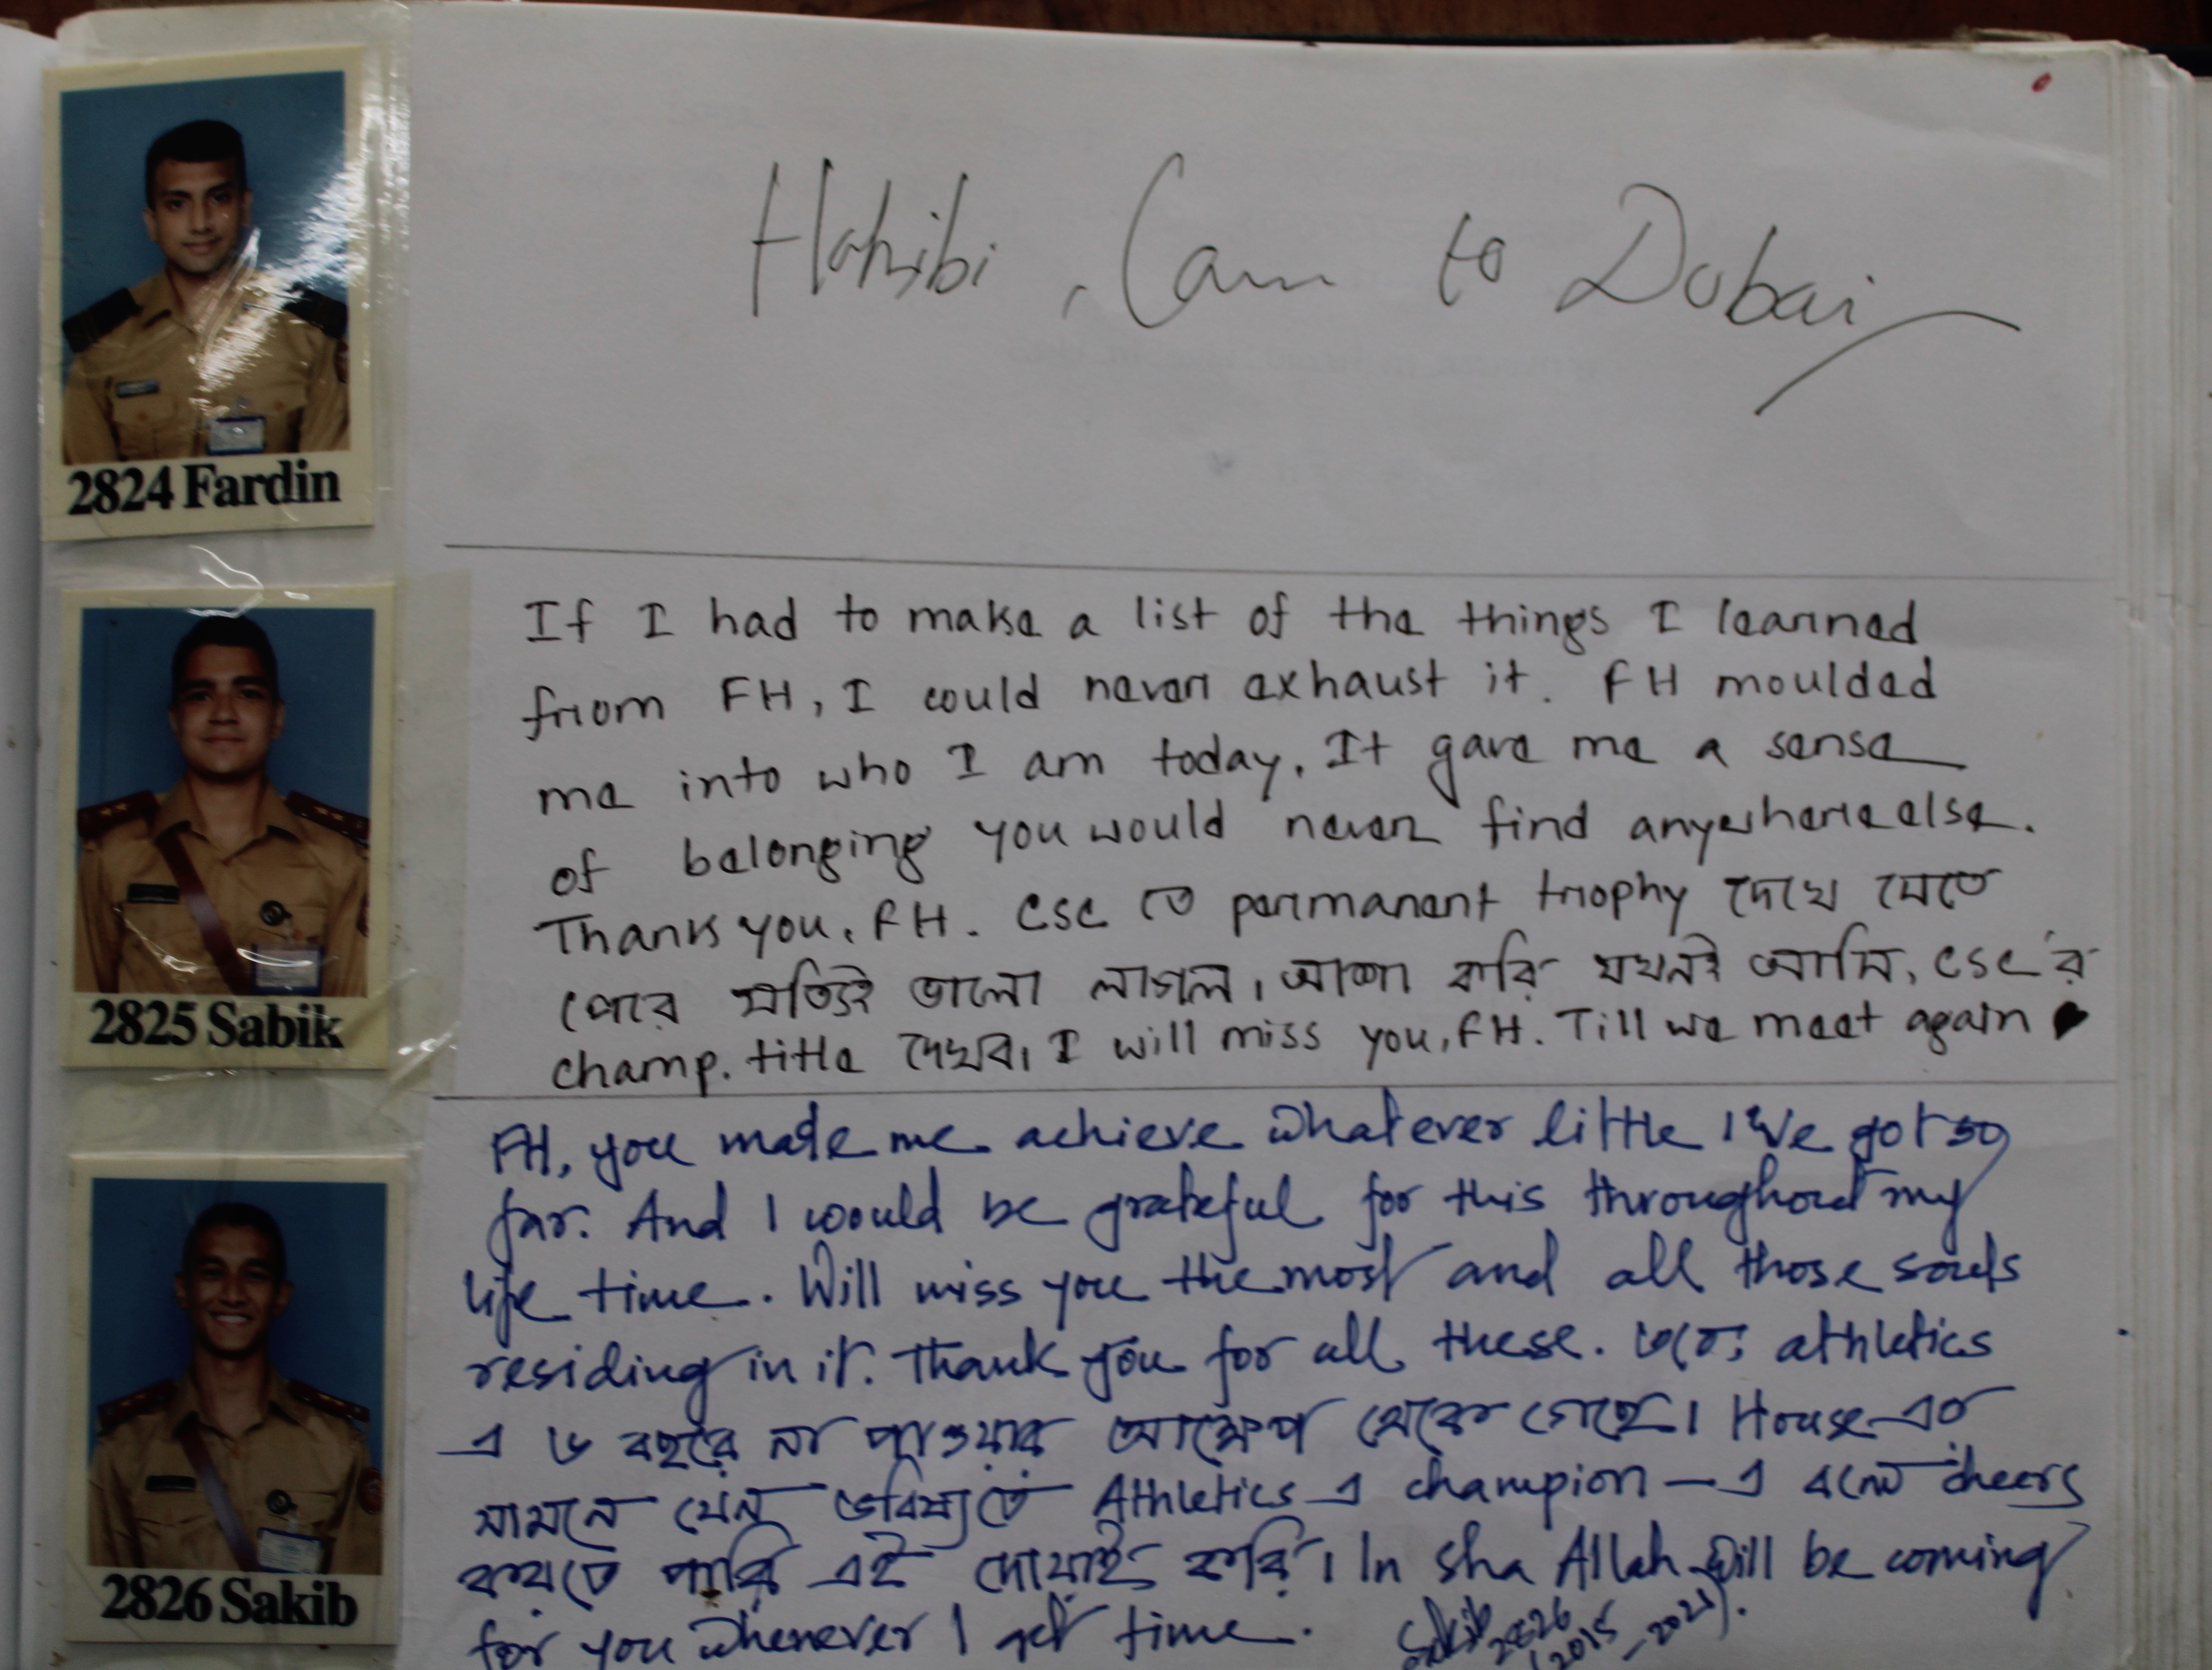 Habibi, Cam to Dubai
2824 Fardin
If I had to make a list of the things I learned
from FH, I could never exhaust it. FH moulded
me into who I am today. It gave me a sense
of belonging you would never find anywhere else.
Thank you, FH. CSC তে permanent trophy দেখে যেতে
পেরে সত্যিই ভালো লাগল। আশা করি যখনই আসি, CSC'র
champ. title দেখব। I will miss you, FH. Till we meet again
2825 Sabik
FH, you made me achieve whatever little I've got so
far. And I would be grateful for this throughout my
life time. Will miss you the most and all those souls
residing in it. Thank you for all these. তবে athletics
এ ৬ বছরে না পাওয়ার আক্ষেপ থেকে গেছে। House এর
সামনে যেন ভবিষ্যতে Athletics এ champion-এ বসে cheers
করতে পারি এই দোয়াই করি। In sha Allah will be coming
for you whenever I get time.
Sakib 2826
(2015-2021).
2826 Sakib